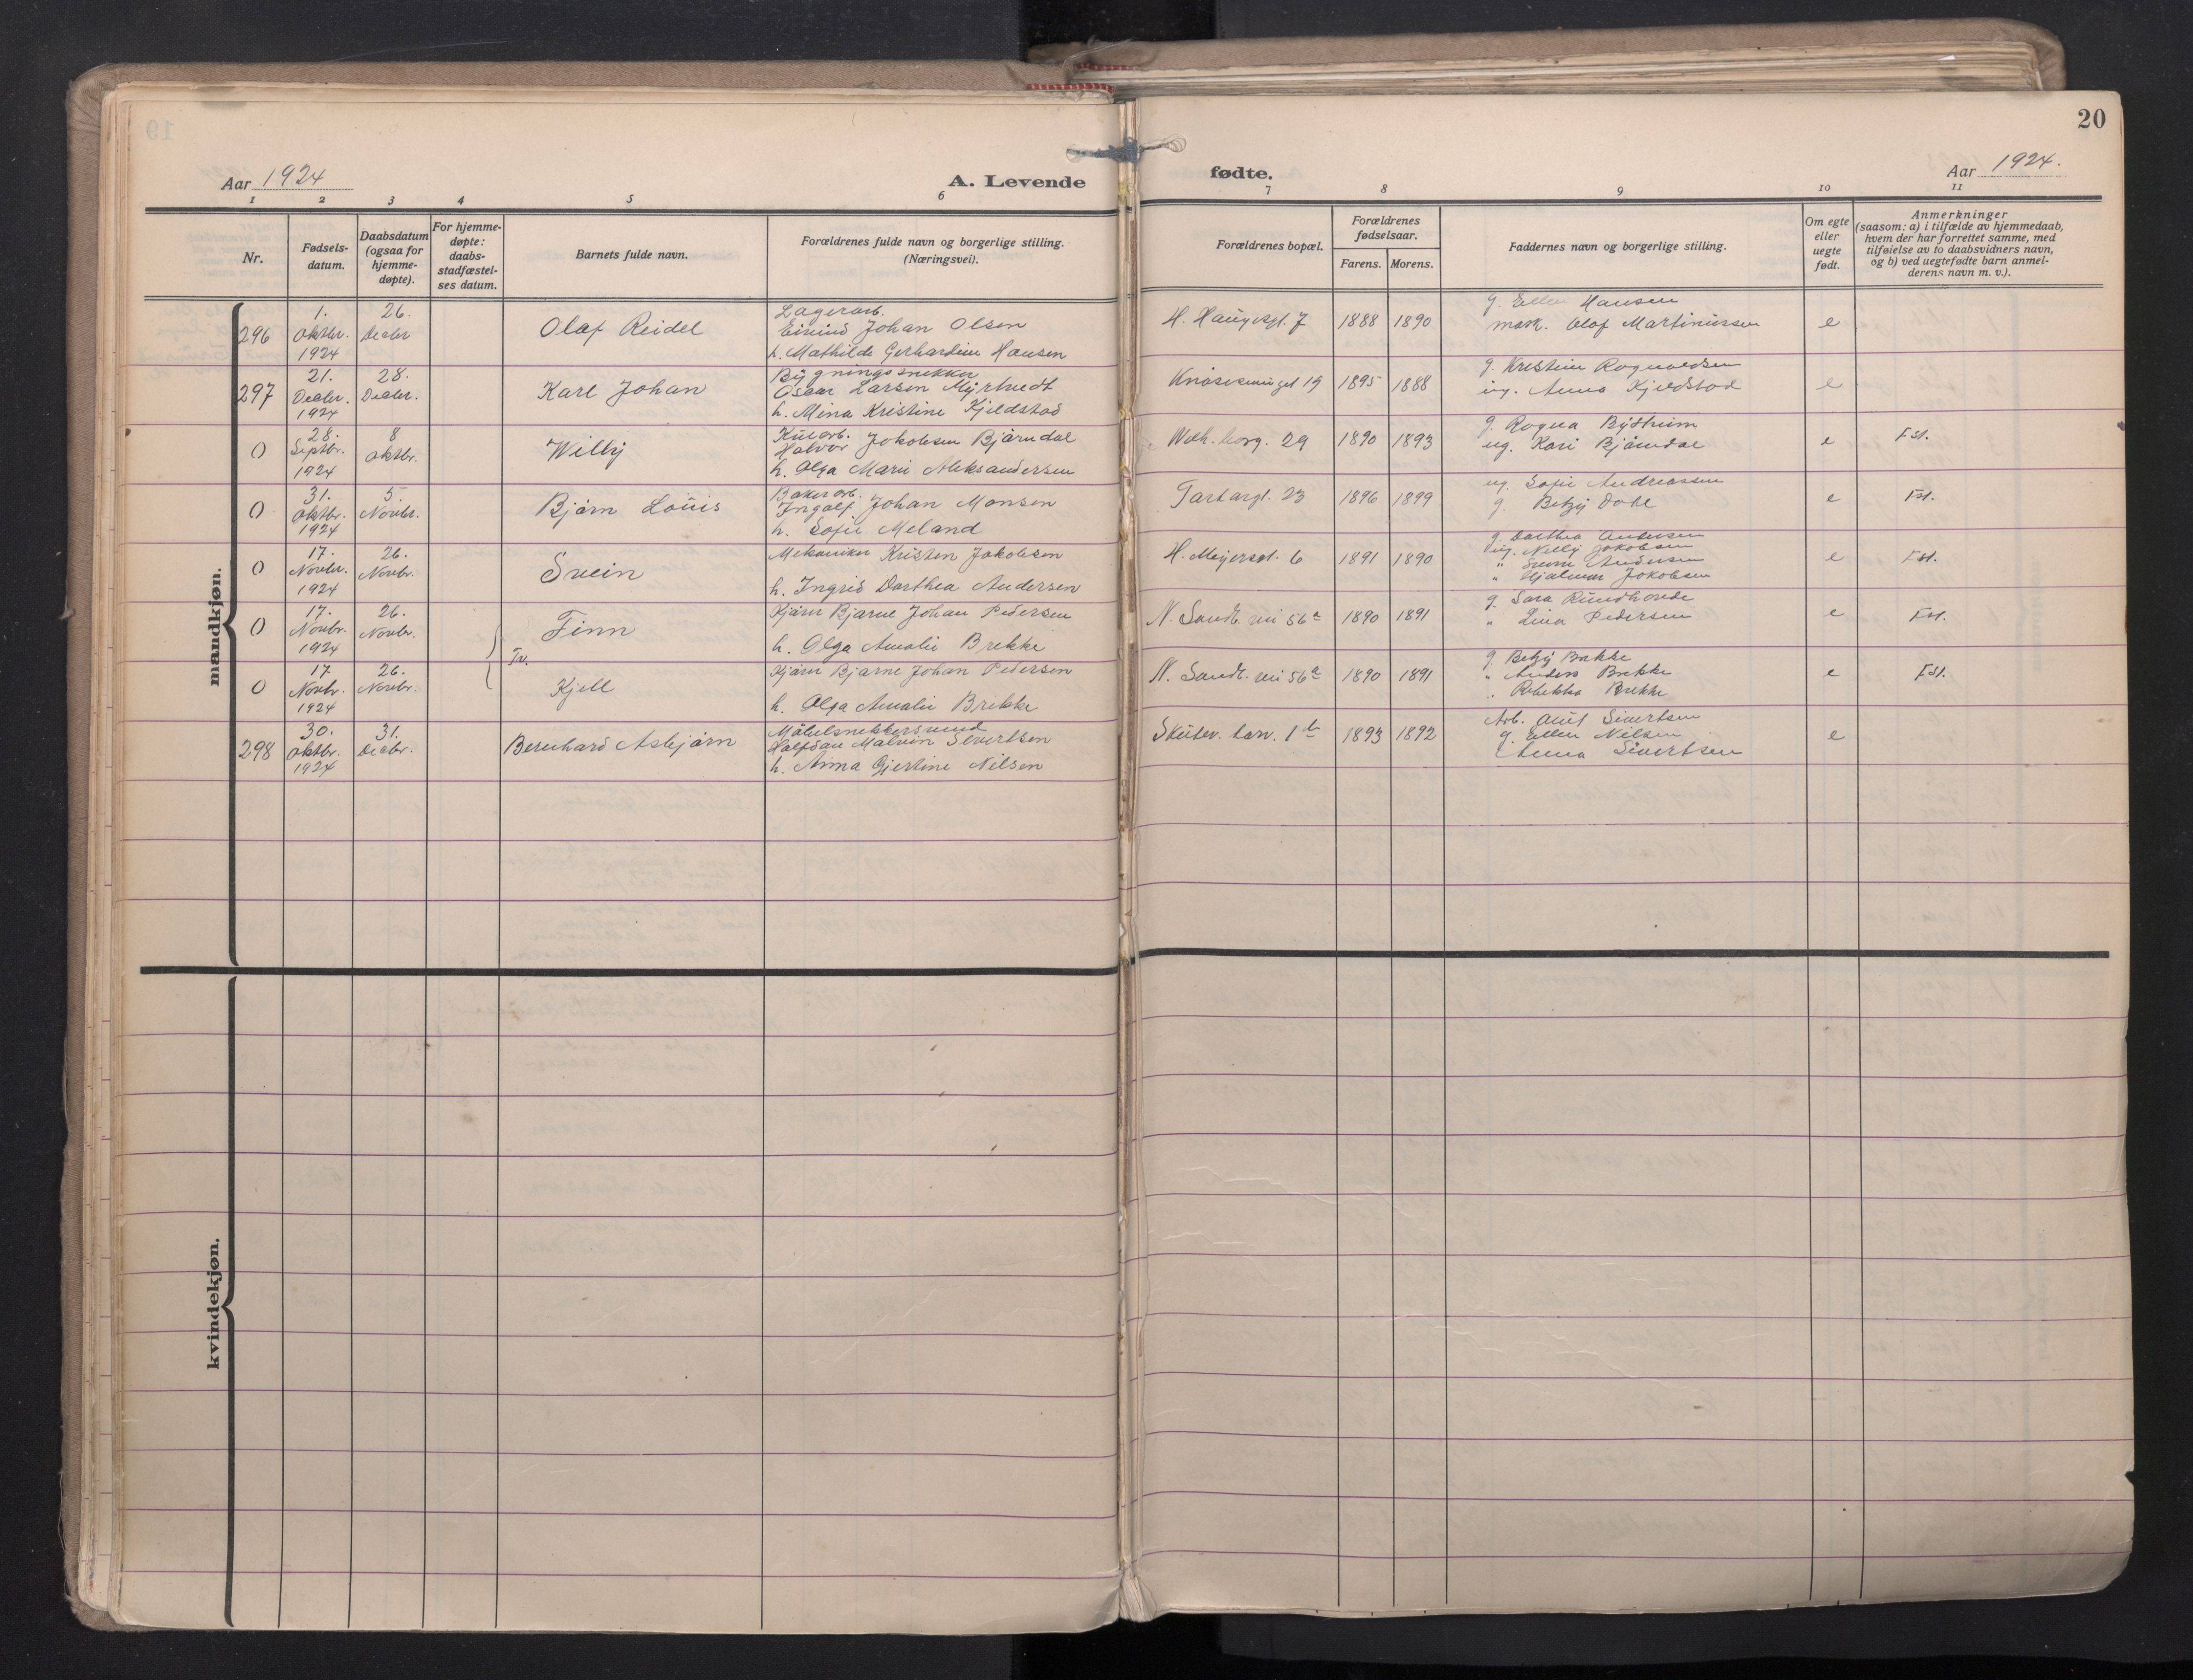 20
Aar 1924
A. Levende fødte.
Aar 1924.
1 2 3 4 5 6 7 8 9 10 11
Nr.
Fødsels-
datum.
Daabsdatum
(ogsaa for
hjemme-
døpte).
For hjemme-
døpte:
daabs-
stadfæstel-
ses datum.
Barnets fulde navn.
Forældrenes fulde navn og borgerlige stilling.
(Næringsvei).
Forældrenes bopæl.
Forældrenes
fødselsaar.
Farens. Morens.
Faddernes navn og borgerlige stilling.
Om egte
eller
uegte
født.
Anmerkninger
(saasom: a) i tilfælde av hjemmedaab,
hvem der har forrettet samme, med
tilføielse av to daabsvidners navn,
og b) ved uegtefødte barn anmel-
derens navn m. v.).
mandkjøn.
296
1.
Oktbr.
1924
26.
Decbr
Olaf Reidel
Lagerarb.
Eivind Johan Olsen
h. Mathilde Gerhardine Hansen
H. Haugesgt. 7
1888 1890
g. Ellen Hansen
mask. Olaf Martinussen
e
297
21.
Decbr.
1924
28.
Decbr.
Karl Johan
Bygningssnekker
Oscar Larsen Myrtvedt
h. Mina Kristine Kjeldstad
1895 1888
g. Kristine Rognaldsen
ug. Anna Kjeldstad
e
0
28.
Septbr.
1924
8
Oktbr.
Willy
Halvor Jakobsen Bjørndal
h. Olga Marie Aleksandersen
29
1890 1893
g. Rogna Bystrøm
ug. Kari Bjørndal
e
Fst.
0
31.
Oktbr.
1924
5.
Novbr.
Bjørn Louis
Bakerarb.
Ingolf Johan Monsen
h. Sofie Meland
Tartargt. 23
1896 1899
ug. Sofie Andreassen
g. Betzy Dahl
e
Fst.
0
17.
Novbr.
1924
26.
Novbr.
Svein
Mekaniker Kristen Jakobsen
h. Ingrid Dorthea Andersen
H. Meyersgt. 6
1891 1890
g. Dorthea Andersen
ug. Nelly Jakobsen
" Andersen
" Hjalmar Jakobsen
e
Fst.
0
17.
Novbr.
1924
26.
Novbr.
Finn
Kjører Bjarne Johan Pedersen
h. Olga Amalie Brekke
N. Sandv. vei 56a
1890 1891
g. Sara Rundhovde
" Lina Pedersen
e
Fst.
Tv.
0
17
Novbr.
1924
26.
Novbr.
Kjell
Kjører Bjarne Johan Pedersen
h. Olga Amalie Brekke
N. Sandv. vei 56a
1890 1891
g. Betzy Bakke
" Anders Brekke
" Rebekka Brekke
e
Fst.
298
30.
Oktbr.
1924
31.
Decbr.
Bernhard Asbjørn
Møbelsnekkersvend
Halfdan Malvin Sivertsen
h. Anna Gjertine Nilsen
Skutev. torv. 1b
1893 1892
Arb. Sivertsen
g. Ellen Nilsen
Anna Sivertsen
e
kvindekjøn.